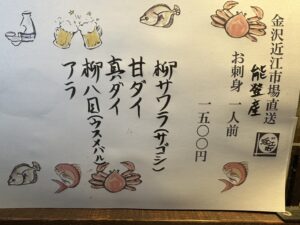 金沢近江市場直送
能登産
お刺身 一人前
一五〇〇円
柳サワラ(サゴシ)
甘ダイ
真ダイ
柳八目(ウスメバル)
アラ